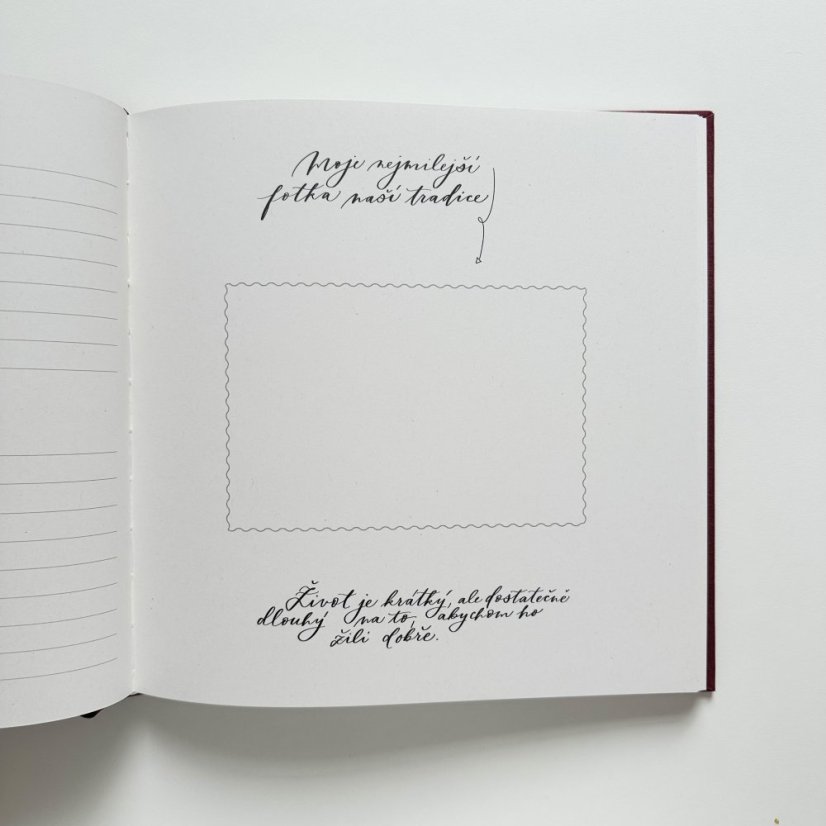 Moje nejmilejší
fotka naší tradice
Život je krátký, ale dostatečně
dlouhý na to, abychom ho
žili dobře.